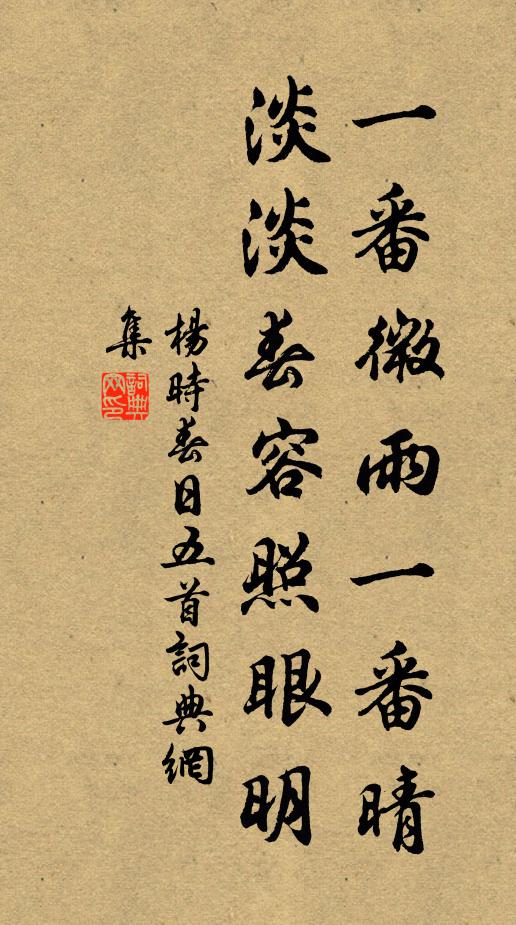 一番微雨一番晴
淡淡春容照眼明
楊時春日五首詞典網
集
詞典
網印